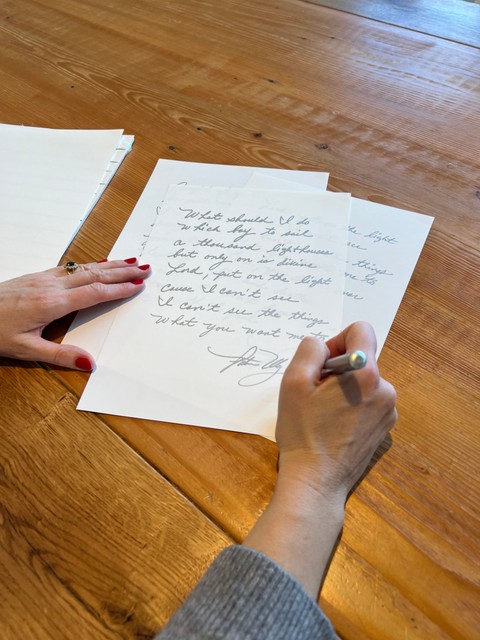 What should I do
Which bay to sail
a thousand lighthouses
but only on is divine
Lord, put on the light
cause I can't see
I can't see the things
What you want me to
the light
things
me to